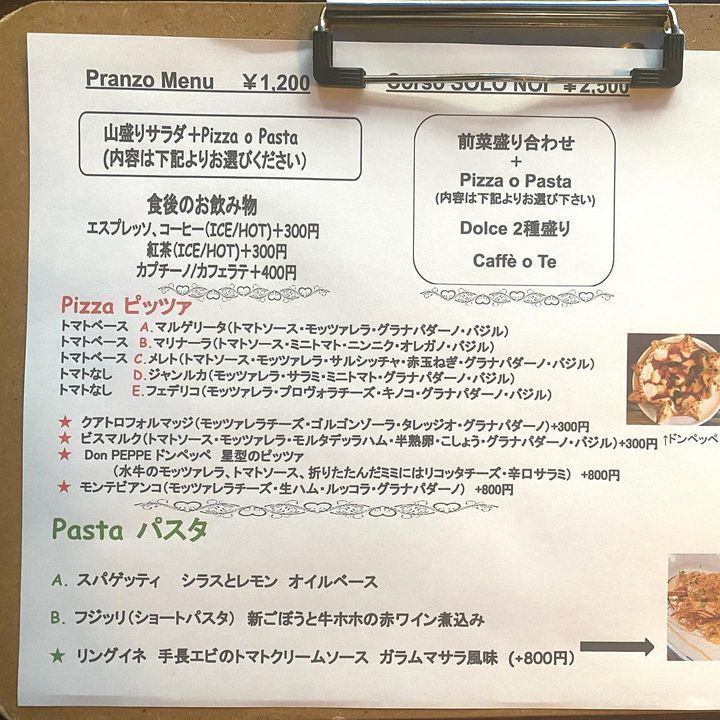 Pranzo Menu ￥1,200
山盛りサラダ＋Pizza o Pasta
(内容は下記よりお選びください)
食後のお飲み物
エスプレッソ、コーヒー(ICE/HOT)＋300円
紅茶(ICE/HOT)＋300円
カプチーノ/カフェラテ＋400円
Corso SOLO NOI ￥2,500
前菜盛り合わせ
+
Pizza o Pasta
(内容は下記よりお選び下さい)
Dolce 2種盛り
Caffè o Te
Pizza ピッツァ
トマトベース A.マルゲリータ(トマトソース・モッツァレラ・グラナパダーノ・バジル)
トマトベース B.マリナーラ(トマトソース・ミニトマト・ニンニク・オレガノ・バジル)
トマトベース C.メレト(トマトソース・モッツァレラ・サルシッチャ・赤玉ねぎ・グラナパダーノ・バジル)
トマトなし D.ジャンルカ(モッツァレラ・サラミ・ミニトマト・グラナパダーノ・バジル)
トマトなし E.フェデリコ(モッツァレラ・プロヴォラチーズ・キノコ・グラナパダーノ・バジル)
★ クアトロフォルマッジ(モッツァレラチーズ・ゴルゴンゾーラ・タレッジオ・グラナパダーノ)+300円
★ ビスマルク(トマトソース・モッツァレラ・モルタデッラハム・半熟卵・こしょう・グラナパダーノ・バジル)+300円 ↑ドンペッペ
★ Don PEPPE ドンペッペ 星型のピッツァ
(水牛のモッツァレラ、トマトソース、折りたたんだミミにはリコッタチーズ・辛口サラミ) +800円
★ モンテビアンコ(モッツァレラチーズ・生ハム・ルッコラ・グラナパダーノ) +800円
Pasta パスタ
A. スパゲッティ シラスとレモン オイルベース
B. フジッリ(ショートパスタ) 新ごぼうと牛ホホの赤ワイン煮込み
★ リングイネ 手長エビのトマトクリームソース ガラムマサラ風味 (+800円)